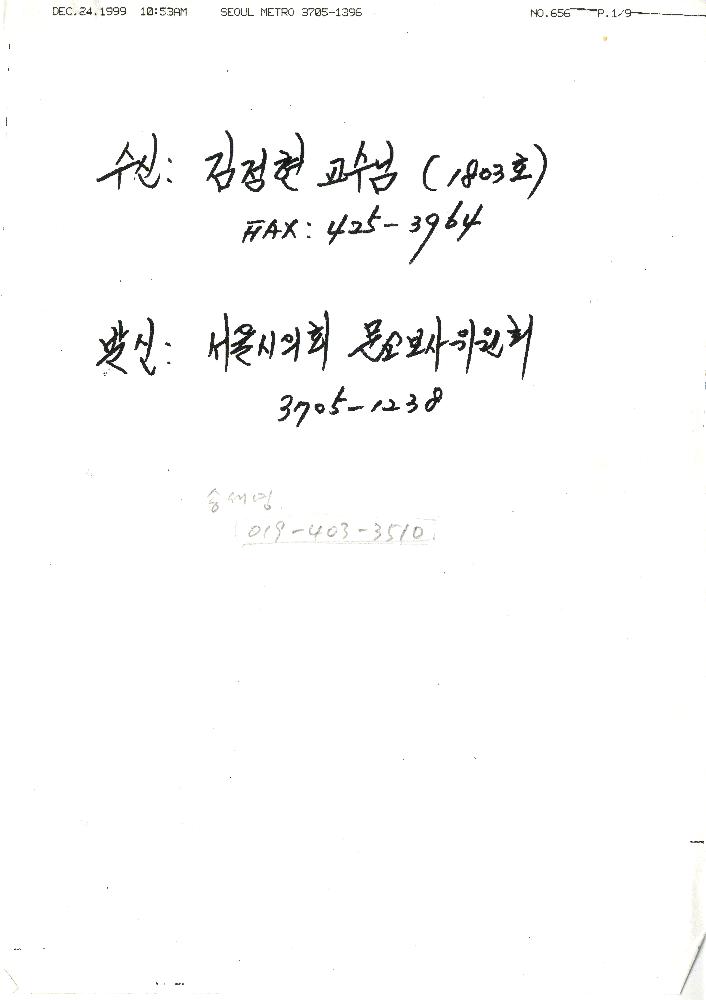 DEC.24.1999 10:53AM SEOUL METRO 3705-1396 NO.656 P.1/9
수신: 김정현 교수님 (1803호)
FAX: 425-3964
발신: 서울시의회 문교보사위원회
3705-1238
송세영
019-403-3510